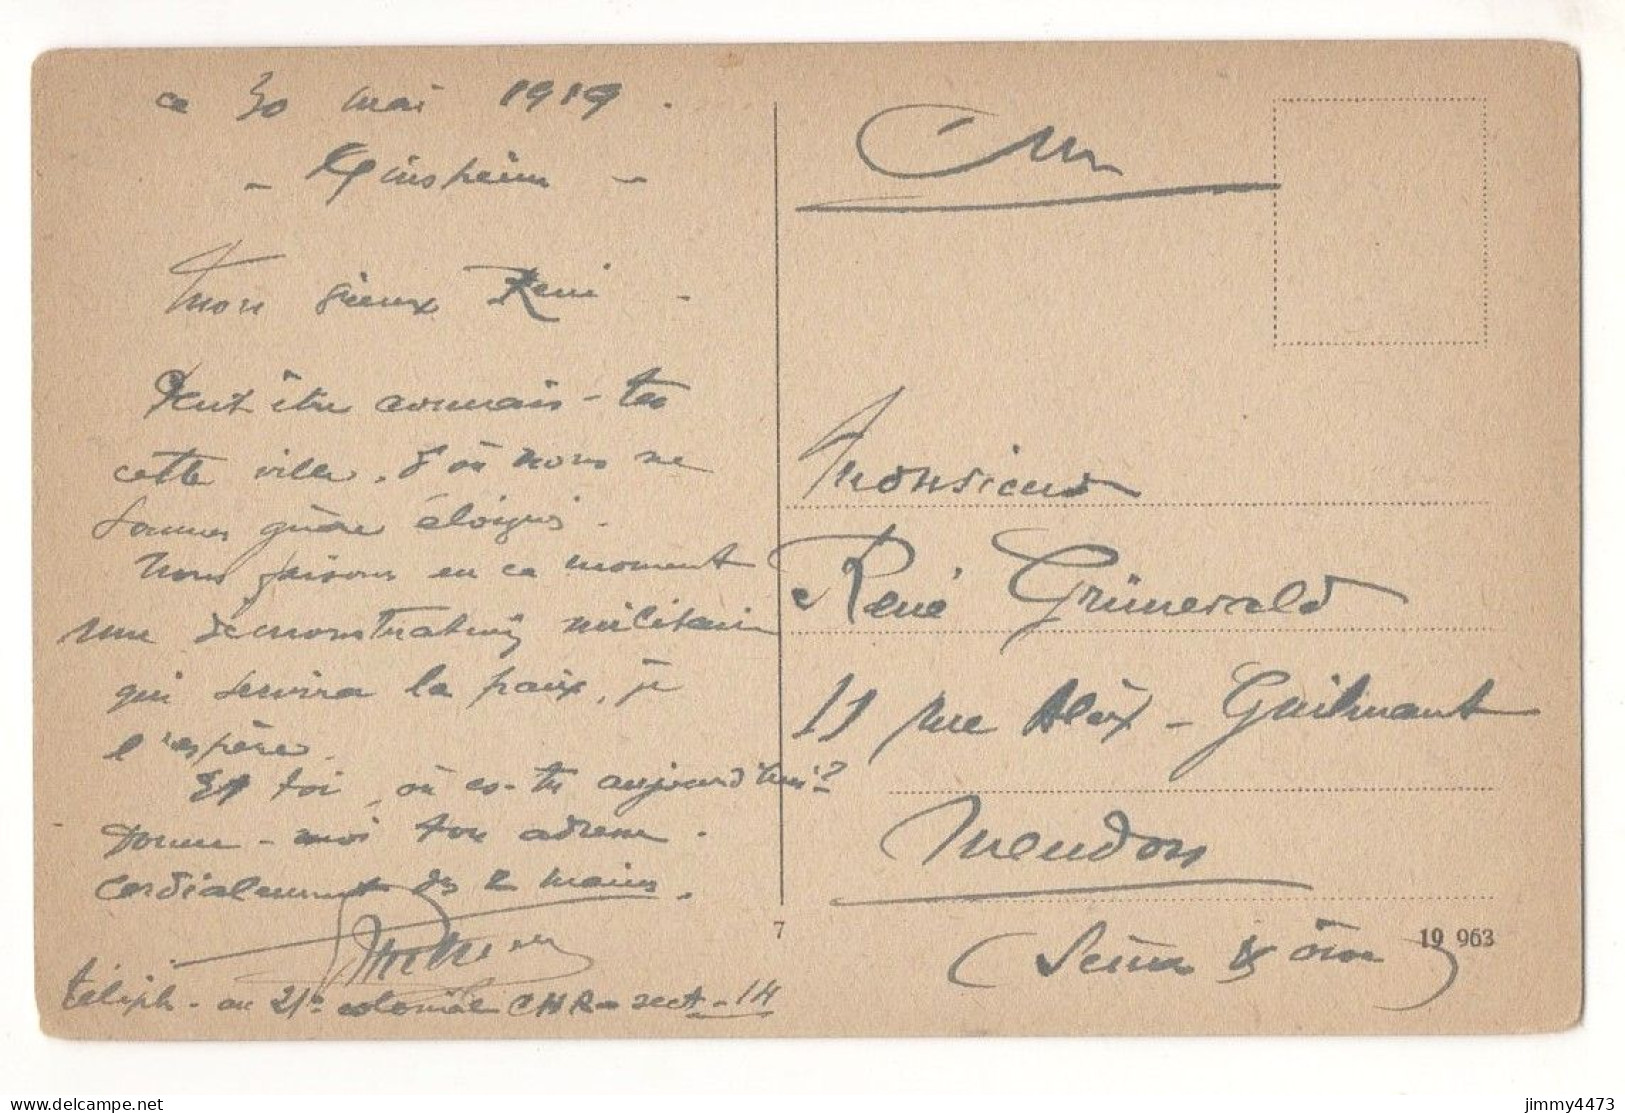 ce 30 mai 1919.
Mon vieux René -
Peut être connais-tu
cette ville, d'où nous ne
sommes guère éloignés.
Nous faisons en ce moment
une démonstration militaire
qui servira la paix, je
l'espère.
Et toi, où es-tu aujourd'hui?
Donne-moi ton adresse.
Cordialement des 2 mains.
téléph- au 21e colonial CHR - sect-14
7
Monsieur
René Grünewald
11 rue Aléx-Guilmant
Meudon
(Seine & Oise)
19 963
jimmy4473
delcampe.net